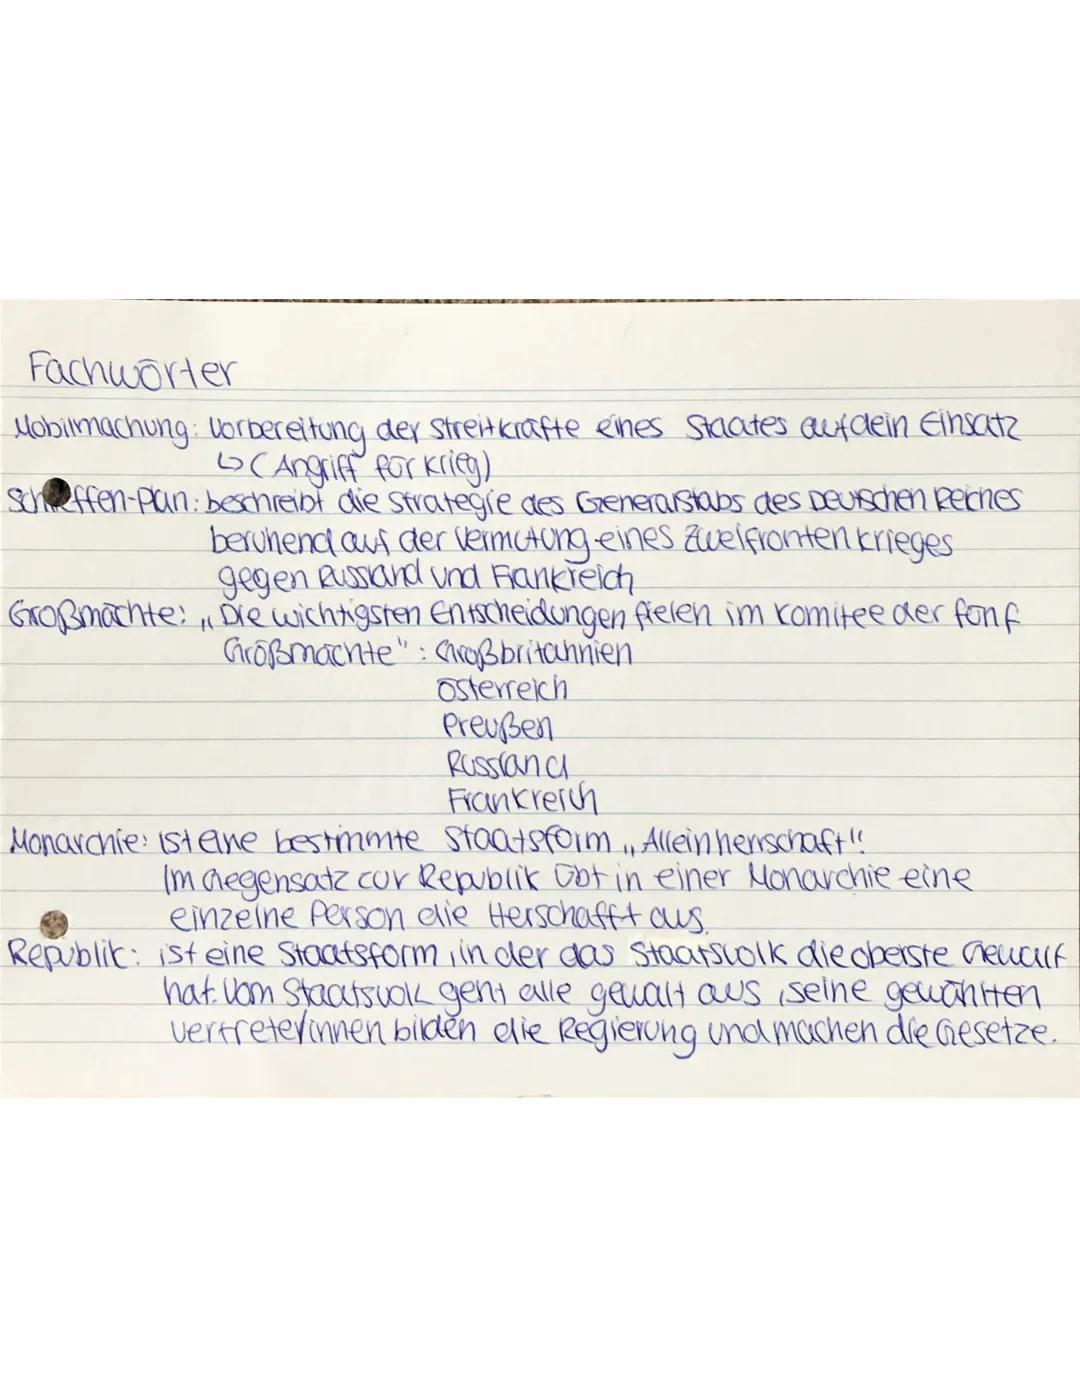 Fachwörter
Mobilmachung: Vorbereitung der Streitkräfte eines Staates auf dein Einsatz
↳ (Angriff für Krieg)
beschreibt die Strategie des Generalstabs des Deutschen Reiches
beruhend auf der Vermutung eines Zweifrontenkrieges
gegen Russland und Frankreich
Großmächte: „Die wichtigsten Entscheidungen fielen im Komitee der fünf
Größmächte": Großbritannien
Österreich
Preußen
Russland
Frankreich
Monarchie: ist eine bestimmte Staatsform „Alleinherrschaft".
Im Gegensatz zur Republik übt in einer Monarchie eine
einzelne Person die Herschafft aus.
Republik: ist eine Staatsform, in der das Staatsvolk die oberste Gewalt
hat. Vom Staatsvolk geht alle gewalt aus, seine gewählten
Vertreter/innen bilden die Regierung und machen die Gesetze.